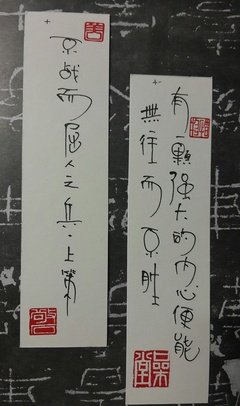 有一颗强大的内心便能
無往而不胜
不战而屈人之兵上策